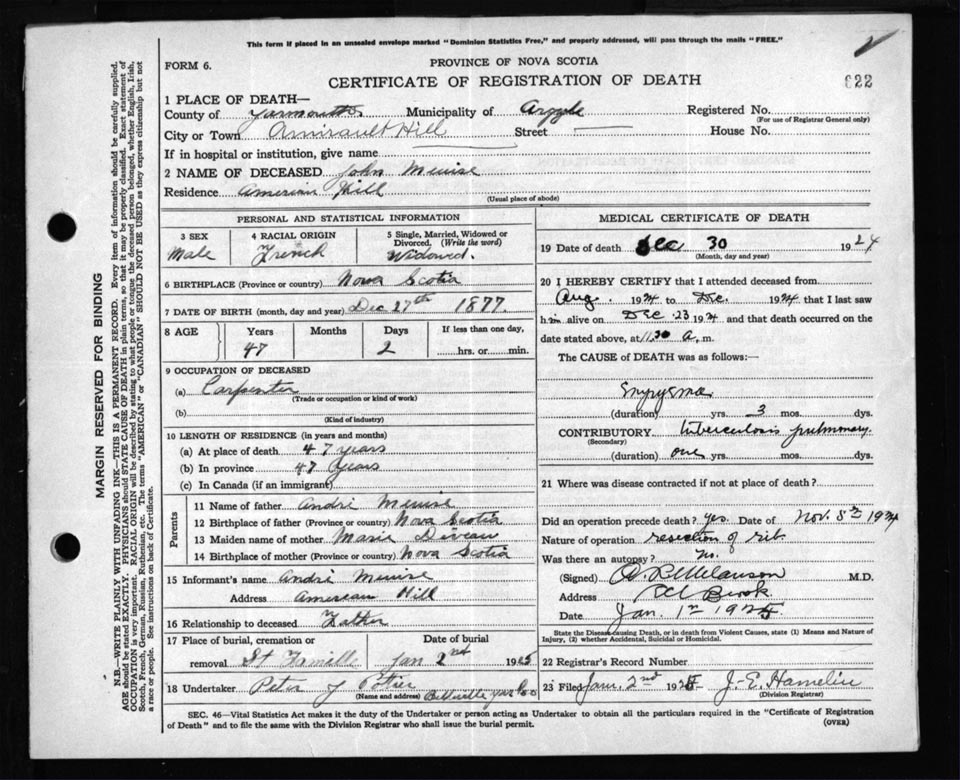 This form if placed in an unsealed envelope marked "Dominion Statistics Free," and properly addressed, will pass through the mails "FREE."
FORM 6.
PROVINCE OF NOVA SCOTIA
CERTIFICATE OF REGISTRATION OF DEATH
622
1 PLACE OF DEATH—
County of Yarmouth Municipality of Argyle Registered No.
(For use of Registrar General only)
City or Town Amirault Hill Street House No.
If in hospital or institution, give name
2 NAME OF DECEASED John Meuise
Residence American Hill
(Usual place of abode)
PERSONAL AND STATISTICAL INFORMATION
3 SEX 4 RACIAL ORIGIN 5 Single, Married, Widowed or Divorced. (Write the word)
Male French Widowed.
6 BIRTHPLACE (Province or country) Nova Scotia
7 DATE OF BIRTH (month, day and year) Dec 27th 1877.
8 AGE Years Months Days If less than one day,
47 2 hrs. or min.
9 OCCUPATION OF DECEASED
(a) Carpenter
(Trade or occupation or kind of work)
(b)
(Kind of industry)
10 LENGTH OF RESIDENCE (in years and months)
(a) At place of death 47 years
(b) In province 47 years
(c) In Canada (if an immigrant)
Parents
11 Name of father André Meuise
12 Birthplace of father (Province or country) Nova Scotia
13 Maiden name of mother Marie Deveau
14 Birthplace of mother (Province or country) Nova Scotia
15 Informant's name André Meuise
Address American Hill
16 Relationship to deceased Father
17 Place of burial, cremation or Date of burial
removal St Famille Jan 2nd 1925
18 Undertaker Peter J Belleville
(Name and address)
MEDICAL CERTIFICATE OF DEATH
19 Date of death Dec 30 1924
(Month, day and year)
20 I HEREBY CERTIFY that I attended deceased from
Aug. 1924 to Dec. 1924 that I last saw
him alive on Dec 23 1924 and that death occurred on the
date stated above, at 11.30 a.m.
The CAUSE of DEATH was as follows:—
(duration) yrs. 3 mos. dys.
CONTRIBUTORY tuberculosis pulmonary.
(Secondary)
(duration) one yrs. mos. dys.
21 Where was disease contracted if not at place of death?
Did an operation precede death? yes. Date of Nov. 8th 1924
Nature of operation resection of rib.
Was there an autopsy? no.
(Signed) Melanson M.D.
Address Brook
Date Jan. 1st 1925
State the Disease causing Death, or in death from Violent Causes, state (1) Means and Nature of Injury, (2) whether Accidental, Suicidal or Homicidal.
22 Registrar's Record Number
23 Filed Jan. 2nd 1925 J. E. Hamelin
(Division Registrar)
SEC. 46—Vital Statistics Act makes it the duty of the Undertaker or person acting as Undertaker to obtain all the particulars required in the "Certificate of Registration
of Death" and to file the same with the Division Registrar who shall issue the burial permit.
(OVER)
MARGIN RESERVED FOR BINDING
N.B.—WRITE PLAINLY WITH UNFADING INK—THIS IS A PERMANENT RECORD. Every item of information should be carefully supplied.
AGE should be stated EXACTLY. PHYSICIANS should STATE CAUSE OF DEATH in plain terms, so that it may be properly classified. Exact statement of
OCCUPATION is very important. RACIAL ORIGIN will be described by stating to what people or tongue the deceased person belonged, whether English, Irish,
Scotch, French, German, Russian, Ruthenian, etc. The terms "AMERICAN" or "CANADIAN" SHOULD NOT BE USED as they express citizenship but not
a race or people. See instructions on back of Certificate.